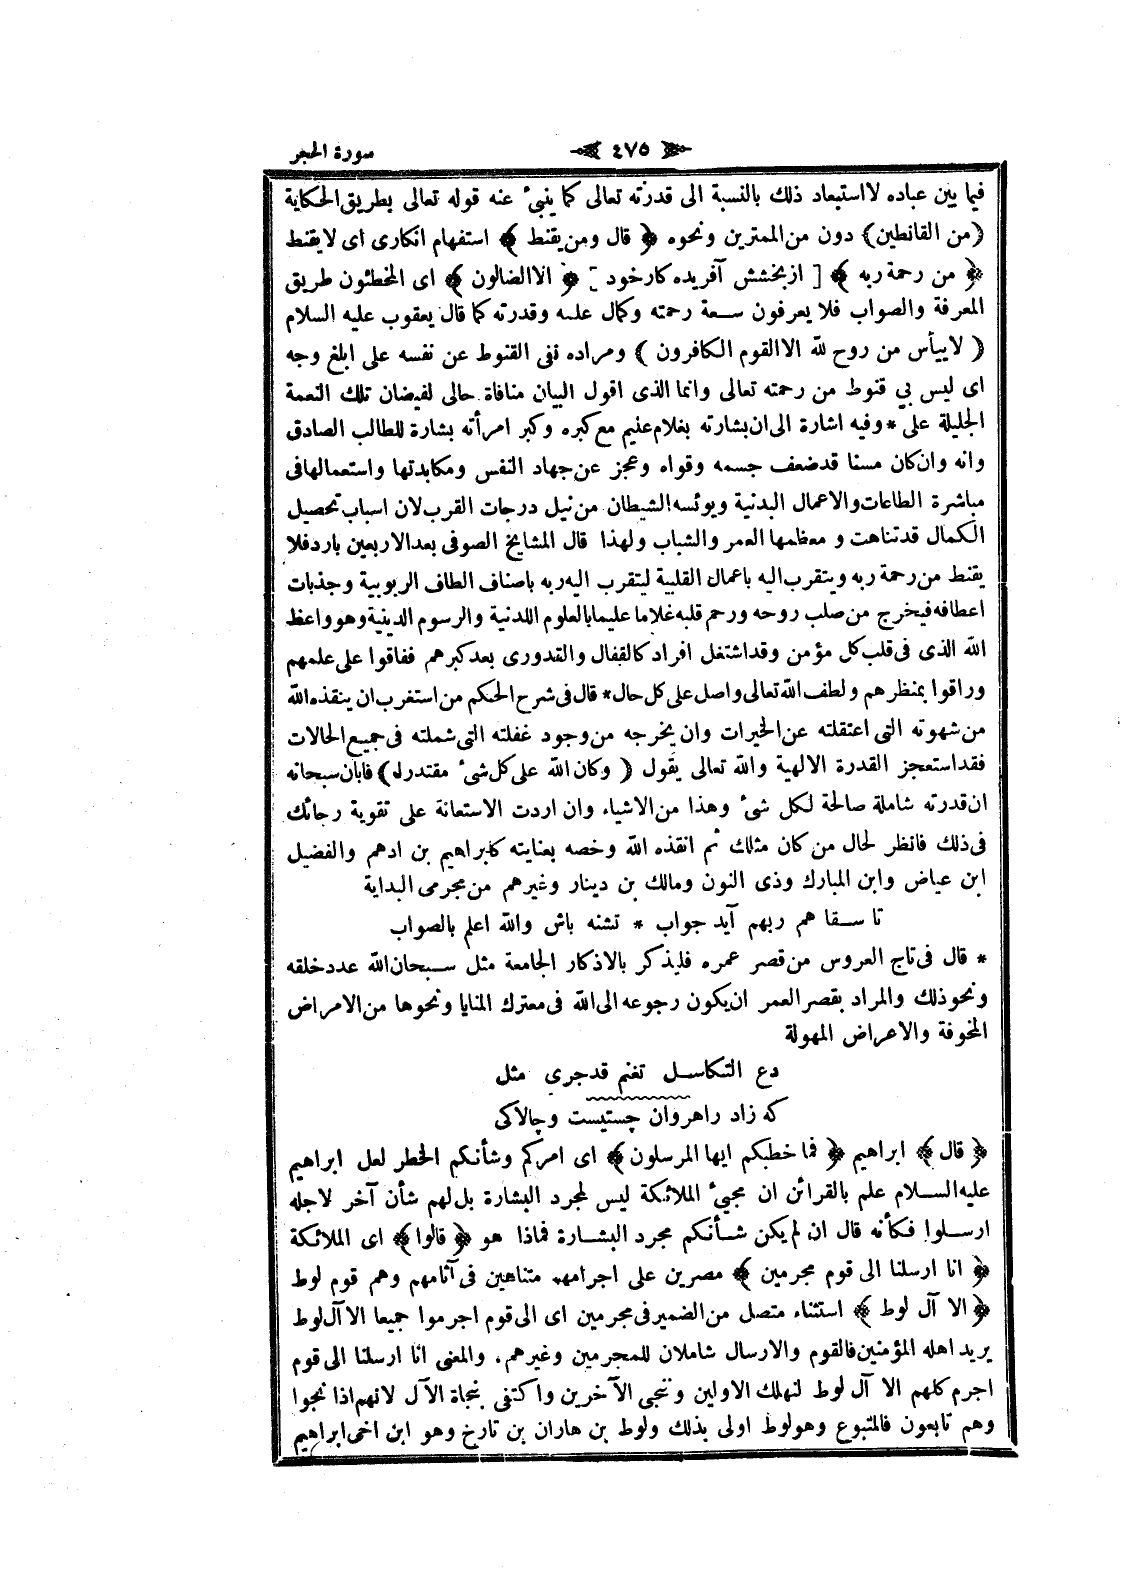 سورة الحجر
٤٧٥
فيما بين عباده لا استبعاد ذلك بالنسبة الى قدرته تعالى كما ينبئ عنه قوله تعالى بطريق الحكاية
(من القانطين) دون من الممترين ونحوه ﴿ قال ومن يقنط ﴾ استفهام انكارى اى لا يقنط
﴿ من رحمة ربه ﴾ [ از بخشش آفريده كار خود ] ﴿ الا الضالون ﴾ اى المخطئون طريق
المعرفة والصواب فلا يعرفون سعة رحمته وكمال علمه وقدرته كما قال يعقوب عليه السلام
( لا ييأس من روح لله الا القوم الكافرون ) ومراده نفى القنوط عن نفسه على ابلغ وجه
اى ليس بي قنوط من رحمته تعالى وانما الذى اقول البيان منافاة حالى لفيضان تلك النعمة
الجليلة على * وفيه اشارة الى ان بشارته بغلام عليم مع كبره وكبر امرأته بشارة للطالب الصادق
وانه وان كان مسنا قد ضعف جسمه وقواه وعجز عن جهاد النفس ومكابدتها واستعمالها فى
مباشرة الطاعات والاعمال البدنية ويوئسه الشيطان من نيل درجات القرب لان اسباب تحصيل
الكمال قد تناهت و معظمها العمر والشباب ولهذا قال المشايخ الصوفى بعد الاربعين بارد فلا
يقنط من رحمة ربه ويتقرب اليه باعمال القلبية ليتقرب اليه ربه باصناف الطاف الربوبية وجذبات
اعطافه فيخرج من صلب روحه ورحم قلبه غلاما عليما بالعلوم اللدنية والرسوم الدينية وهو واعظ
الله الذى فى قلب كل مؤمن وقد اشتغل افراد كالقفال والقدورى بعد كبرهم ففاقوا على علمهم
وراقوا بمنظرهم ولطف الله تعالى واصل على كل حال * قال فى شرح الحكم من استغرب ان ينقذه الله
من شهوته التى اعتقلته عن الخيرات وان يخرجه من وجود غفلته التى شملته فى جميع الحالات
فقد استعجز القدرة الالهية والله تعالى يقول ( وكان الله على كل شئ مقتدرا ) فابان سبحانه
ان قدرته شاملة صالحة لكل شئ وهذا من الاشياء وان اردت الاستعانة على تقوية رجائك
فى ذلك فانظر لحال من كان مثلك ثم انقذه الله وخصه بعنايته كابراهيم بن ادهم والفضيل
ابن عياض وابن المبارك وذى النون ومالك بن دينار وغيرهم من مجرمى البداية
تا سقاهم ربهم آيد جواب * تشنه باش والله اعلم بالصواب
* قال فى تاج العروس من قصر عمره فليذكر بالاذكار الجامعة مثل سبحان الله عدد خلقه
ونحو ذلك والمراد بقصر العمر ان يكون رجوعه الى الله فى معترك المنايا ونحوها من الامراض
المخوفة والاعراض المهولة
دع التكاسل تغنم قد جري مثل
كه زاد راهروان چستيست وچالاكى
﴿ قال ﴾ ابراهيم ﴿ فما خطبكم ايها المرسلون ﴾ اى امركم وشأنكم الخطر لعل ابراهيم
عليه السلام علم بالقرائن ان مجيئ الملائكة ليس لمجرد البشارة بل لهم شأن آخر لاجله
ارسلوا فكأنه قال ان لم يكن شأنكم مجرد البشارة فماذا هو ﴿ قالوا ﴾ اى الملائكة
﴿ انا ارسلنا الى قوم مجرمين ﴾ مصرين على اجرامهم متناهين فى آثامهم وهم قوم لوط
﴿ الا آل لوط ﴾ استثناء متصل من الضمير فى مجرمين اى الى قوم اجرموا جميعا الا آل لوط
يريد اهله المؤمنين فالقوم والارسال شاملان للمجرمين وغيرهم. والمعنى انا ارسلنا الى قوم
اجرم كلهم الا آل لوط لنهلك الاولين وننجى الآخرين واكتفى بنجاة الآل لانهم اذا نجوا
وهم تابعون فالمتبوع وهو لوط اولى بذلك ولوط بن هاران بن تارخ وهو ابن اخى ابراهيم